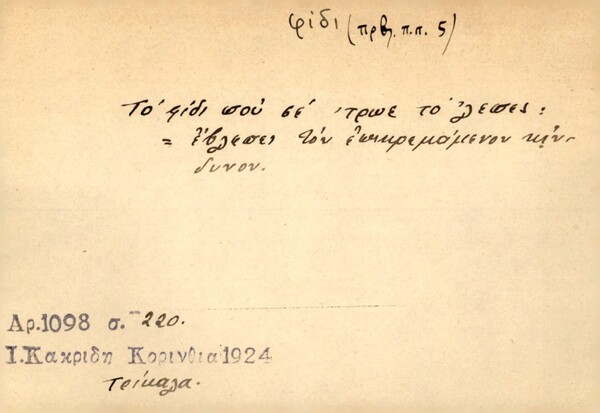 φίδι (πρβ. π.π. 5)
Τὸ φίδι ποὺ σέ 'τρωε τό 'λεπες;
= ἔβλεπες τὸν ἐπικρεμάμενον κίν-
δυνον.
Αρ. 1098 σ. 220.
Ι. Κακριδη Κορινθια 1924
Τρίκαλα.